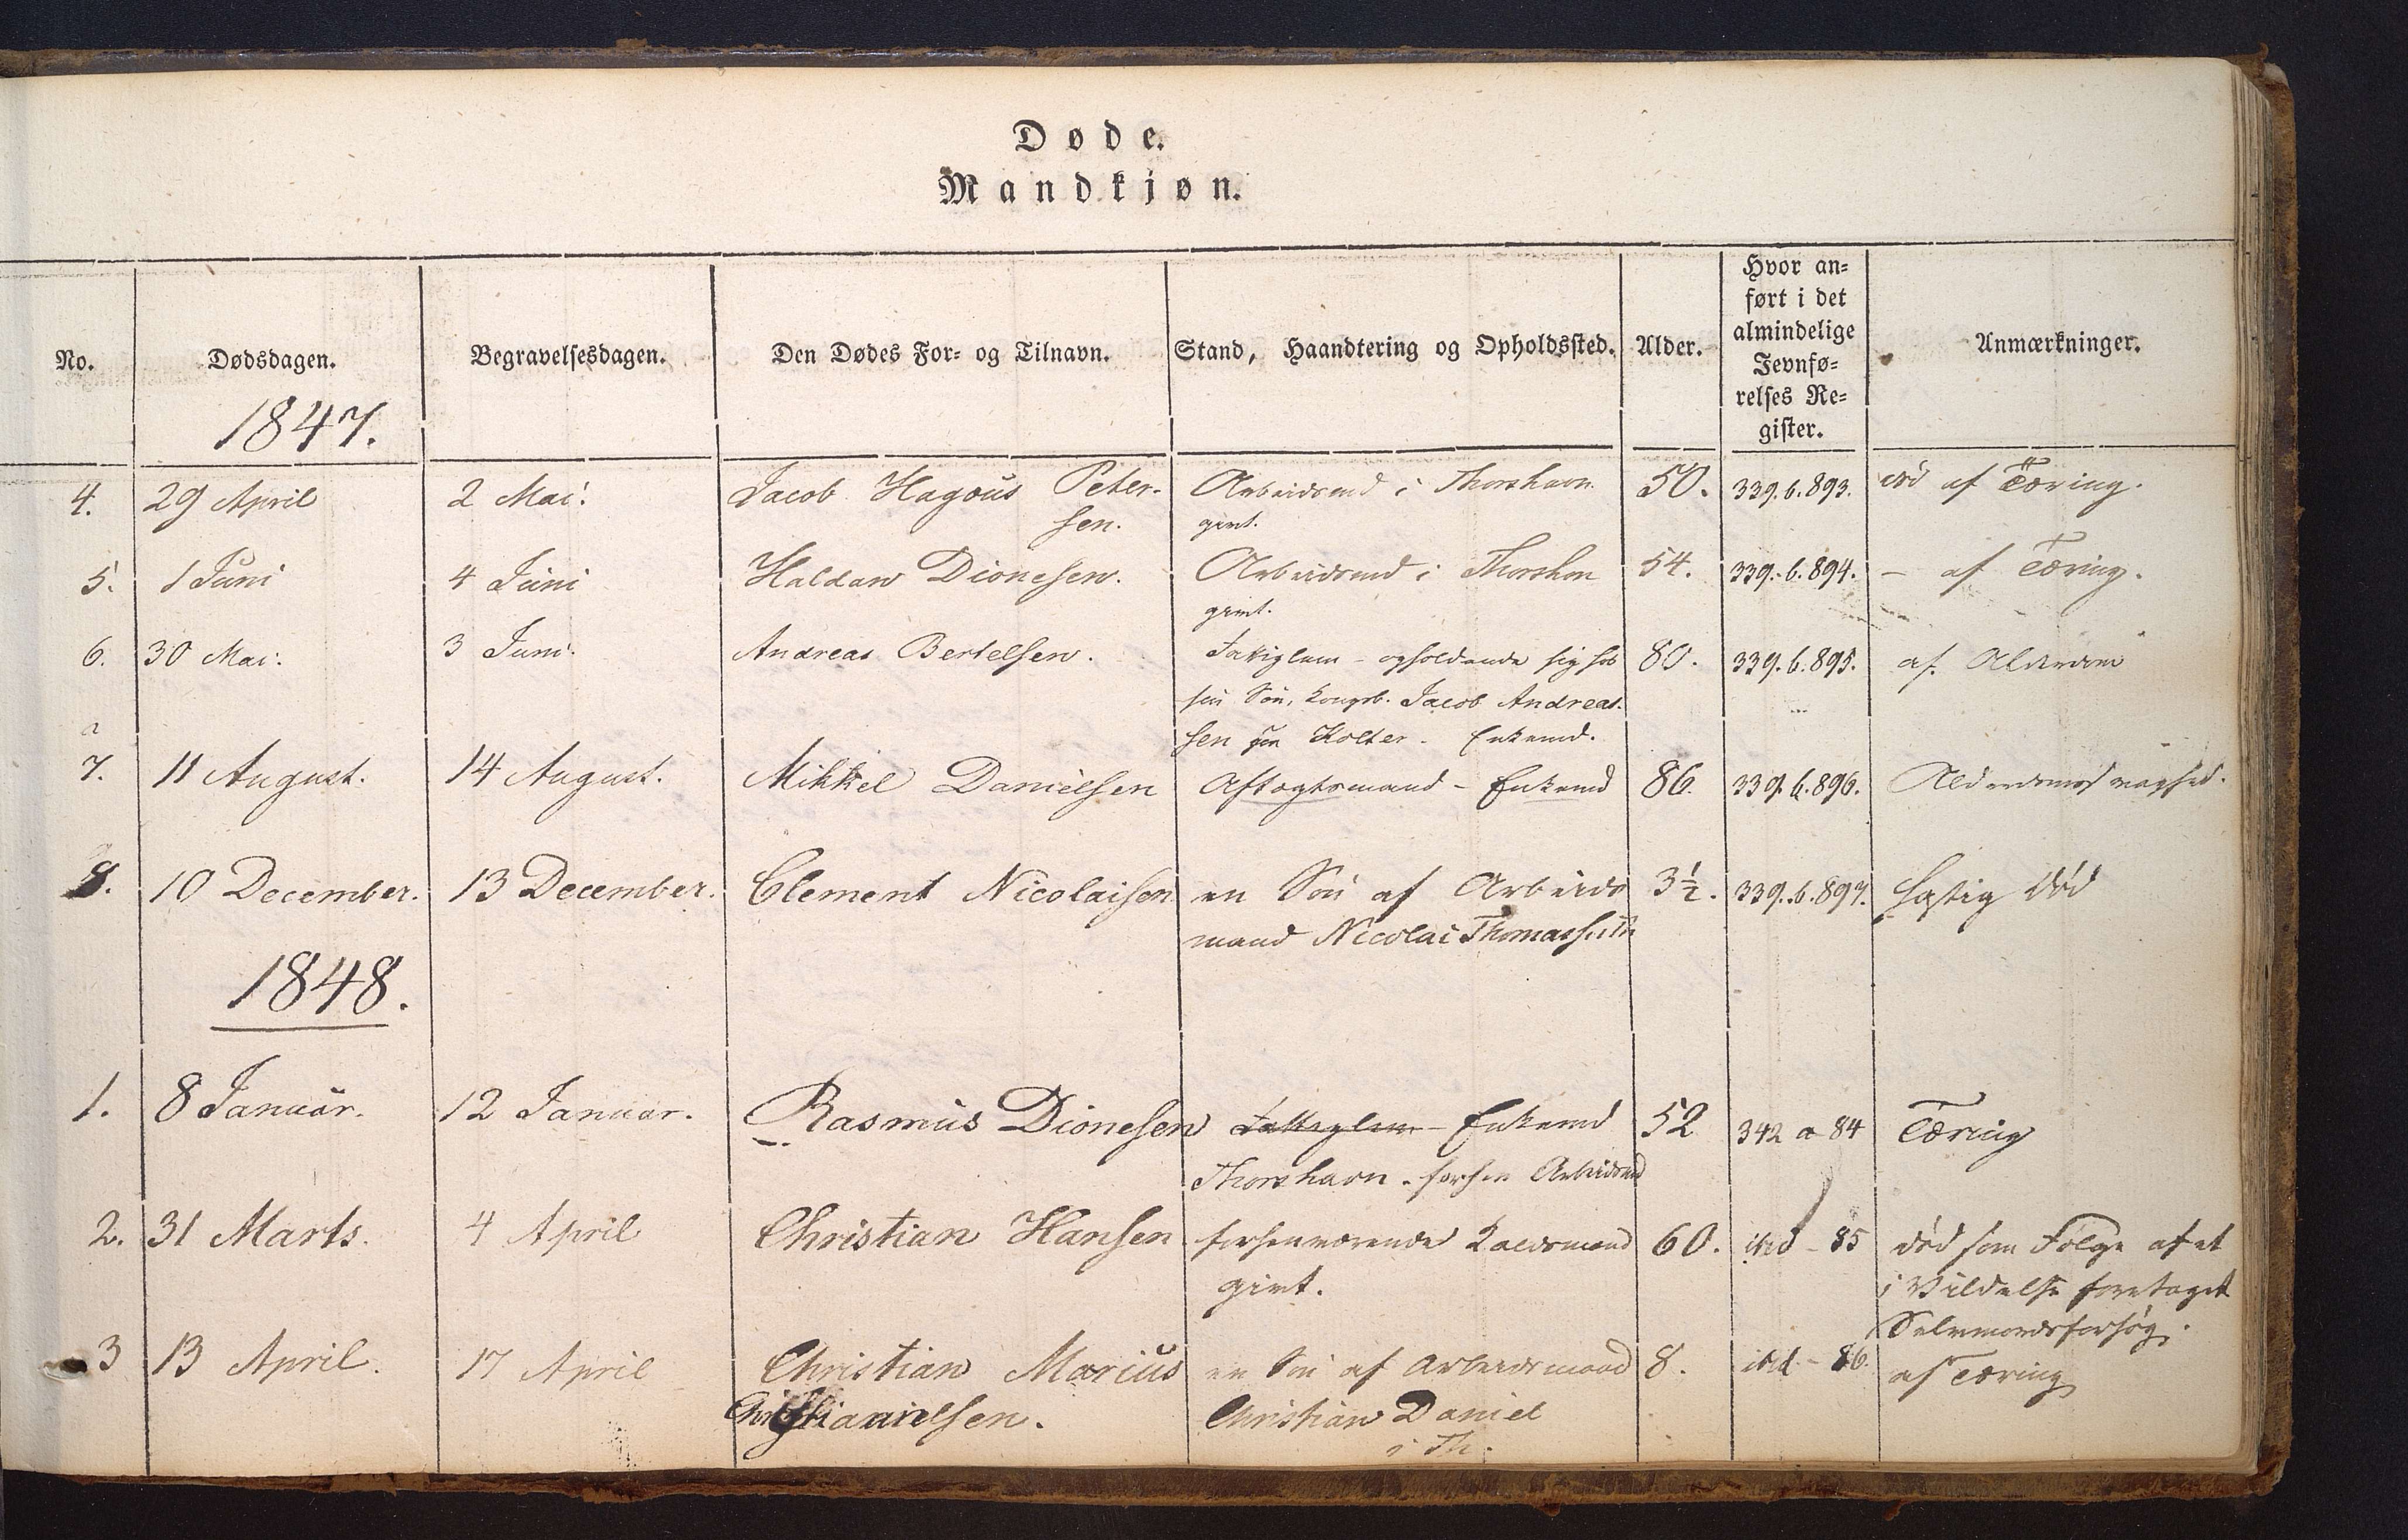 Døde.
Mandkjøn.
No.
Dødsdagen.
Begravelsesdagen.
Den Dødes For- og Tilnavn.
Stand, Haandtering og Opholdssted.
Alder.
Hvor an=
ført i det
almindelige
Jevnfø=
relses Re=
gister.
Anmærkninger.
1847.
4. 29 April 2 Mai: Jacob Hagous Peter- Arbeidsmd i Thorshavn 50. 339.b.893. død af Tæring.
sen. givt.
5. 1 Juni 4 Juni Haldan Dionesen. Arbeidsmd i Thorshvn 54. 339.b.894. – af Tæring.
givt.
6. 30 Mai: 3 Juni. Andreas Bertelsen. Fattiglem – opholdende sig hos 80. 339.b.895. af Alderdom
sin Søn, Kongsb. Jacob Andreas-
sen paa Kolter. Enkemd.
7. 11 August. 14 August. Mikkel Danielsen Aftægtsmand – Enkemd 86. 339.b.896. Alderdomssvaghed.
8. 10 December. 13 December. Clement Nicolaisen en Søn af Arbeids 3½. 339.b.897. hastig Død
mand Nicolai Thomassen
1848.
1. 8 Januar. 12 Januar. Rasmus Dionesen Fattiglem – Enkemd 52 342 a 84 Tæring
Thorshavn. forhen Arbeidsmd
2. 31 Marts. 4 April Christian Hansen forhenværende 60. ibid – 85 død som Følge af et
givt. i Vildelse foretaget
Selvmordsforsøg.
3 13 April. 17 April Christian Marius en Søn af Arbeidsmand 8. ibid – 86. af Tæring
Christian Daniel
i Th.